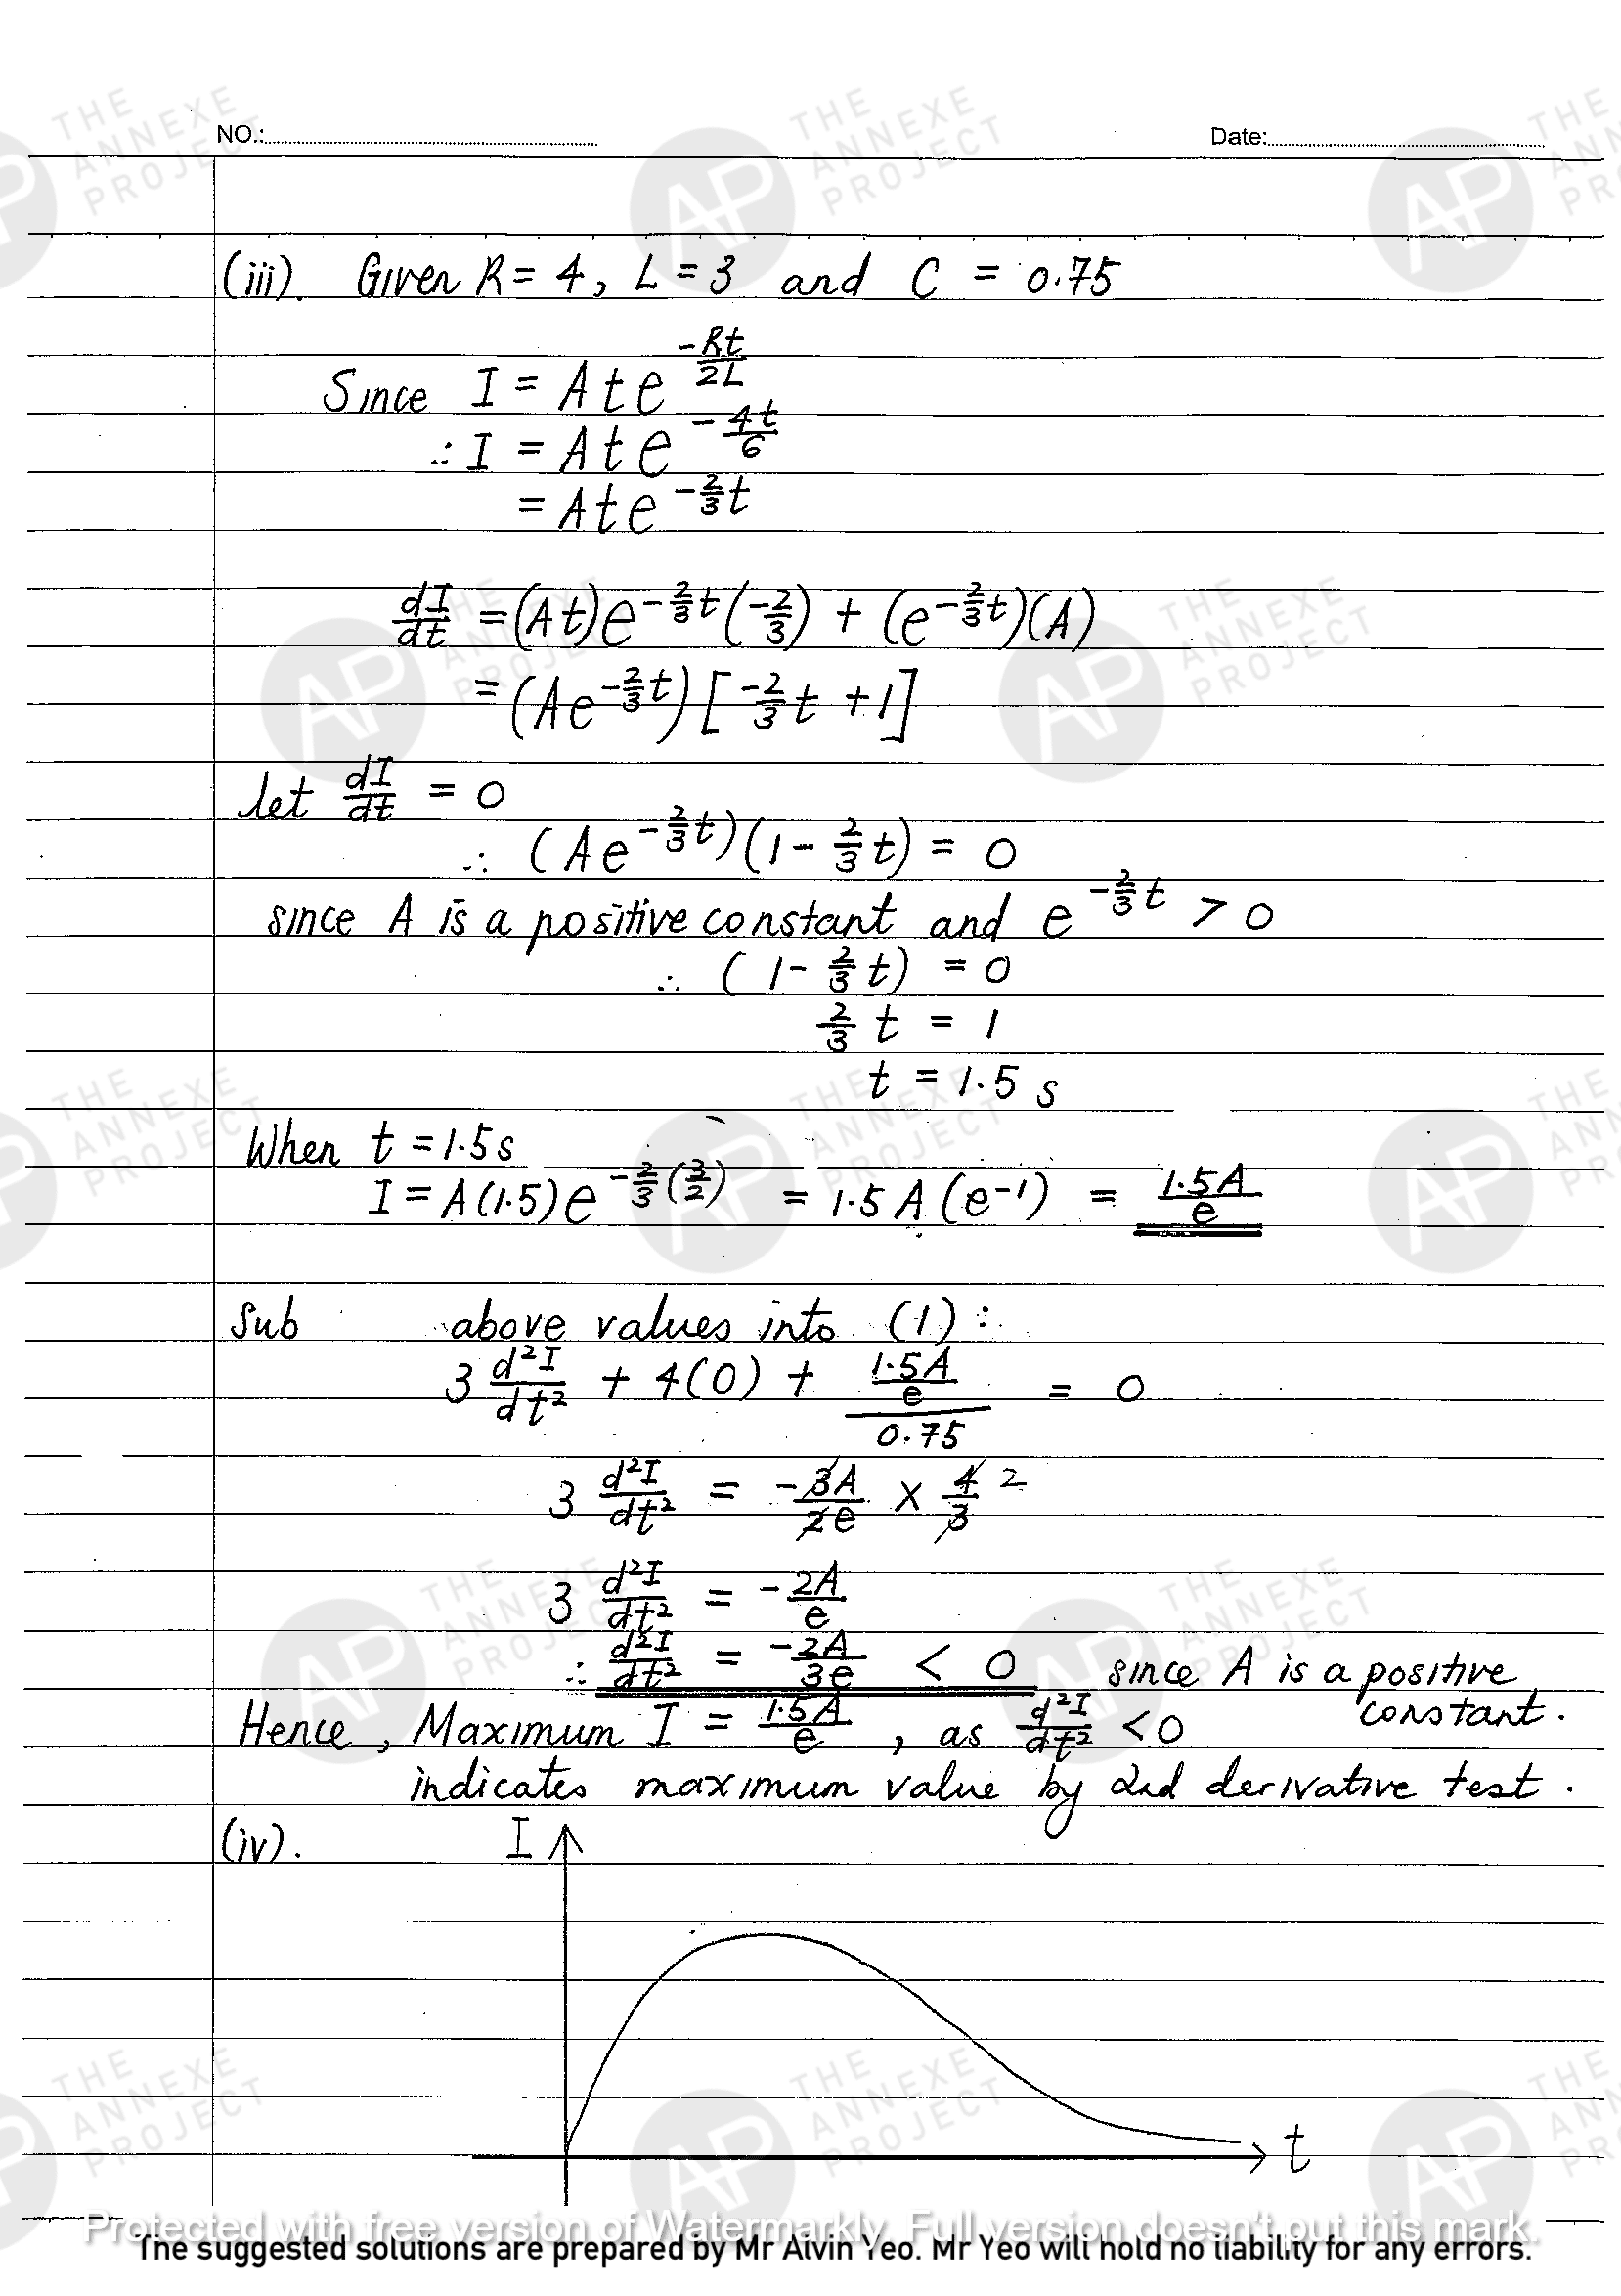 NO.: Date:
(iii). Given R = 4, L = 3 and C = 0.75
Since I = A t e^(-Rt/2L)
∴ I = A t e^(-4t/6)
= A t e^(-2/3 t)
dI/dt = (At)e^(-2/3 t)(-2/3) + (e^(-2/3 t))(A)
= (Ae^(-2/3 t))[-2/3 t + 1]
let dI/dt = 0
∴ (Ae^(-2/3 t))(1 - 2/3 t) = 0
since A is a positive constant and e^(-2/3 t) > 0
∴ (1 - 2/3 t) = 0
2/3 t = 1
t = 1.5 s
When t = 1.5s
I = A(1.5)e^(-2/3(3/2)) = 1.5 A(e^-1) = 1.5A/e
Sub above values into (1):
3 d²I/dt² + 4(0) + (1.5A/e)/0.75 = 0
3 d²I/dt² = -3A/2e × 4/3 2
3 d²I/dt² = -2A/e
∴ d²I/dt² = -2A/3e < 0 since A is a positive
constant.
Hence, Maximum I = 1.5A/e, as d²I/dt² < 0
indicates maximum value by 2nd derivative test.
(iv). I
t
Protected with free version of Watermarkly. Full version doesn't put this mark.
The suggested solutions are prepared by Mr Alvin Yeo. Mr Yeo will hold no liability for any errors.
AP THE ANNEXE PROJECT